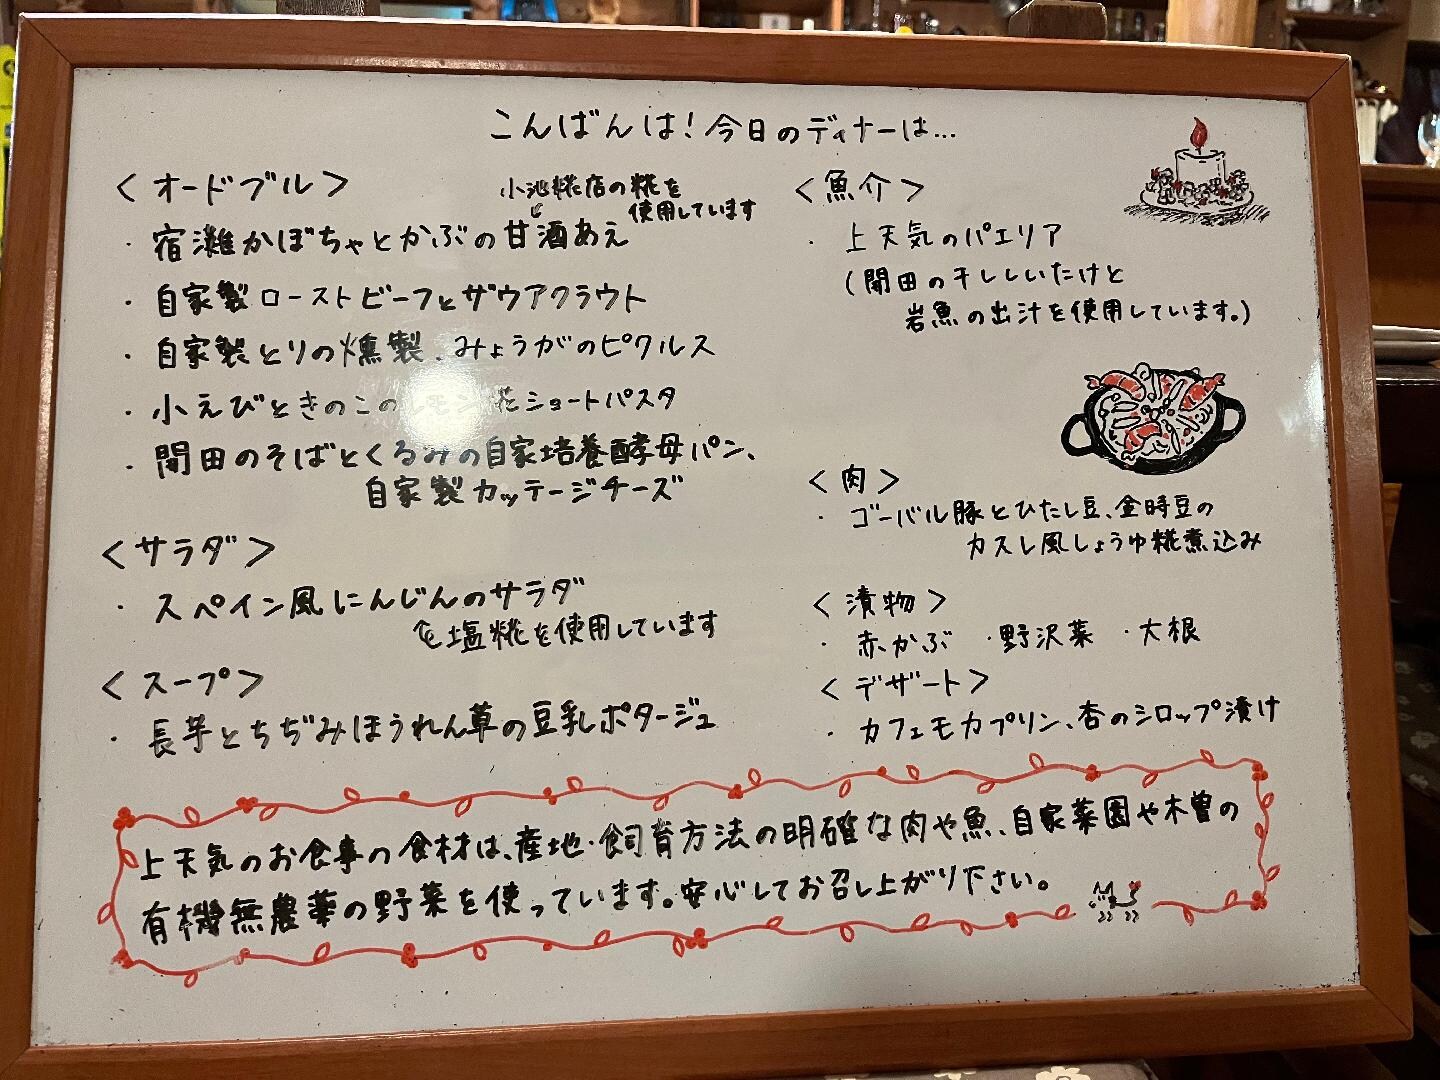 こんばんは!今日のディナーは…
<オードブル>
小池糀店の糀を
使用しています
・宿灘かぼちゃとかぶの甘酒あえ
・自家製ローストビーフとザウアクラウト
・自家製とりの燻製、みょうがのピクルス
・小えびときのこのレモン花ショートパスタ
・開田のそばとくるみの自家培養酵母パン、
自家製カッテージチーズ
<サラダ>
・スペイン風にんじんのサラダ
塩糀を使用しています
<スープ>
・長芋とちぢみほうれん草の豆乳ポタージュ
<魚介>
・上天気のパエリア
(開田の干ししいたけと
岩魚の出汁を使用しています。)
<肉>
・ゴーバル豚とひたし豆、金時豆の
カスレ風しょうゆ糀煮込み
<漬物>
・赤かぶ ・野沢菜 ・大根
<デザート>
・カフェモカプリン、杏のシロップ漬け
上天気のお食事の食材は、産地・飼育方法の明確な肉や魚、自家菜園や木曽の
有機無農薬の野菜を使っています。安心してお召し上がり下さい。